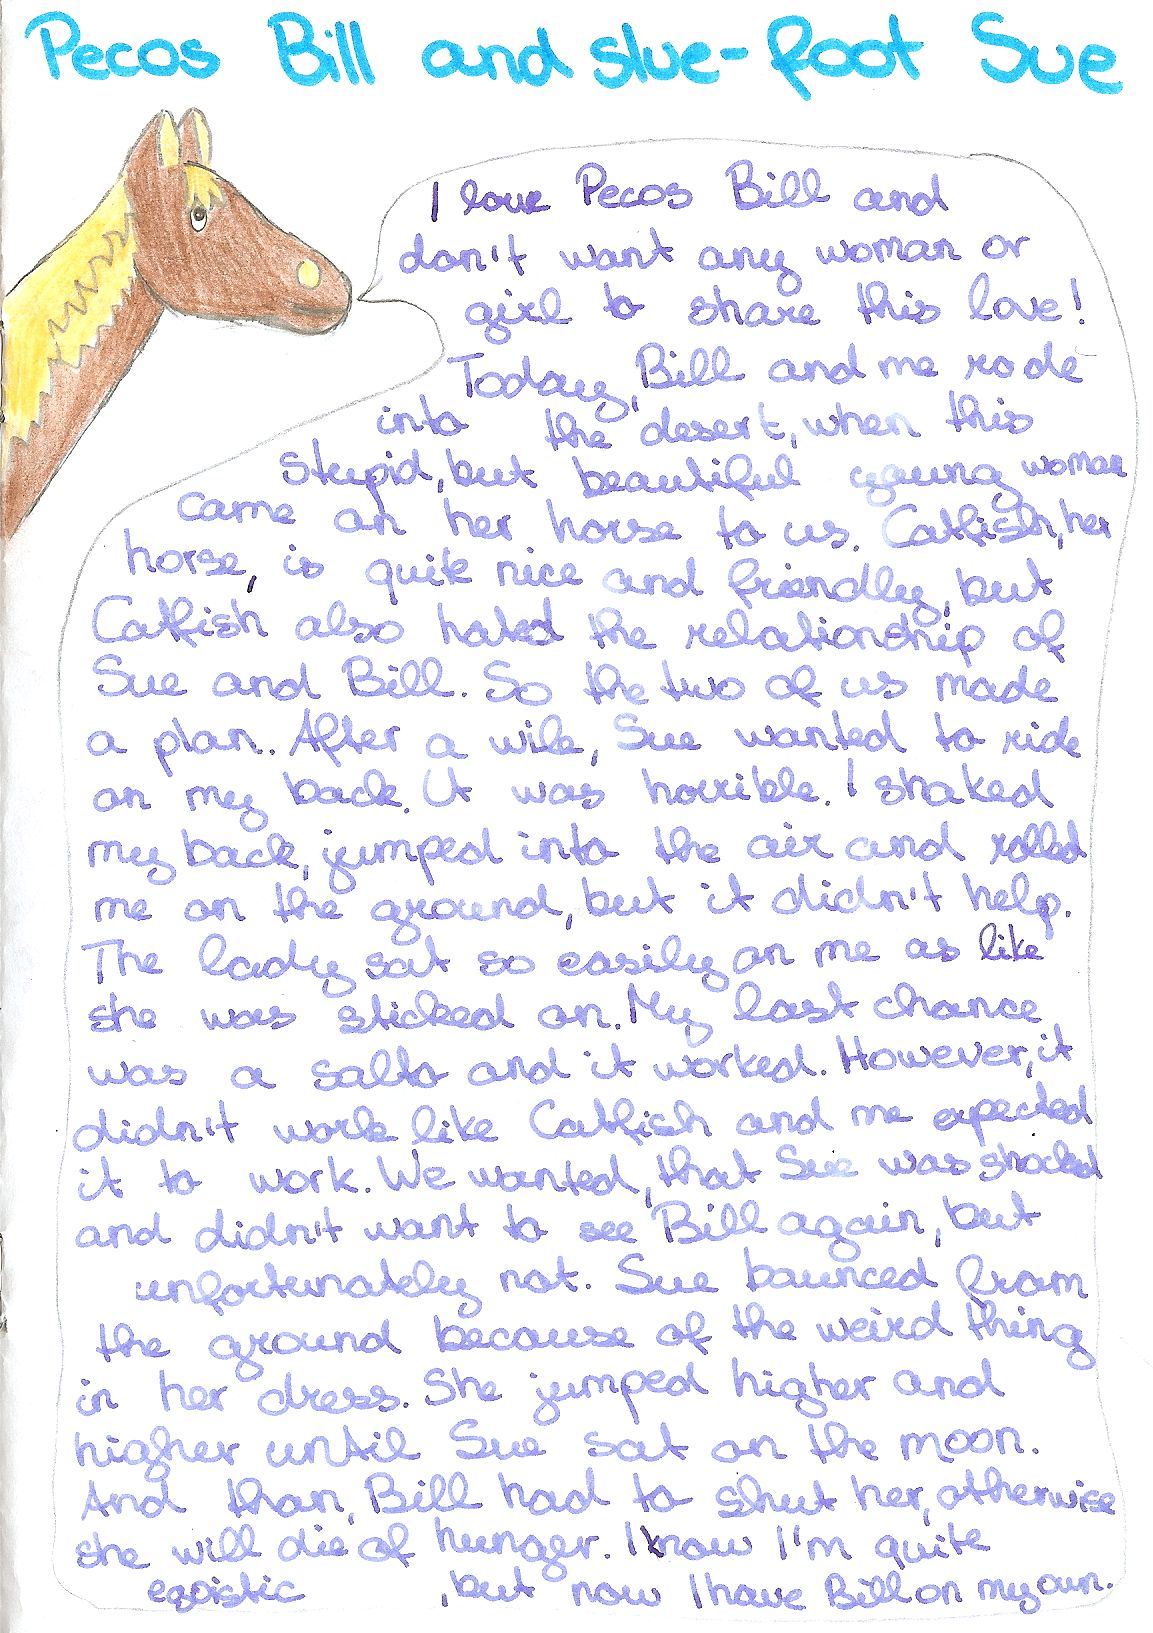 Pecos Bill and slue-foot Sue
I love Pecos Bill and
don't want any woman or
girl to share this love!
Today, Bill and me rode
into the desert, when this
stupid, but beautiful young woman
came on her horse to us. Catfish, her
horse, is quite nice and friendly, but
Catfish also hated the relationship of
Sue and Bill. So the two of us made
a plan. After a wile, Sue wanted to ride
on my back. It was horrible. I shaked
my back, jumped into the air and rolled
me on the ground, but it didn't help.
The lady sat so easily on me as like
she was sticked on. My last chance
was a salto and it worked. However, it
didn't work like Catfish and me expected
it to work. We wanted, that Sue was shocked
and didn't want to see Bill again, but
unfortunately not. Sue bounced from
the ground because of the weird thing
in her dress. She jumped higher and
higher until Sue sat on the moon.
And than, Bill had to shut her, otherwise
she will die of hunger. I know I'm quite
egoistic , but now I have Bill on my own.